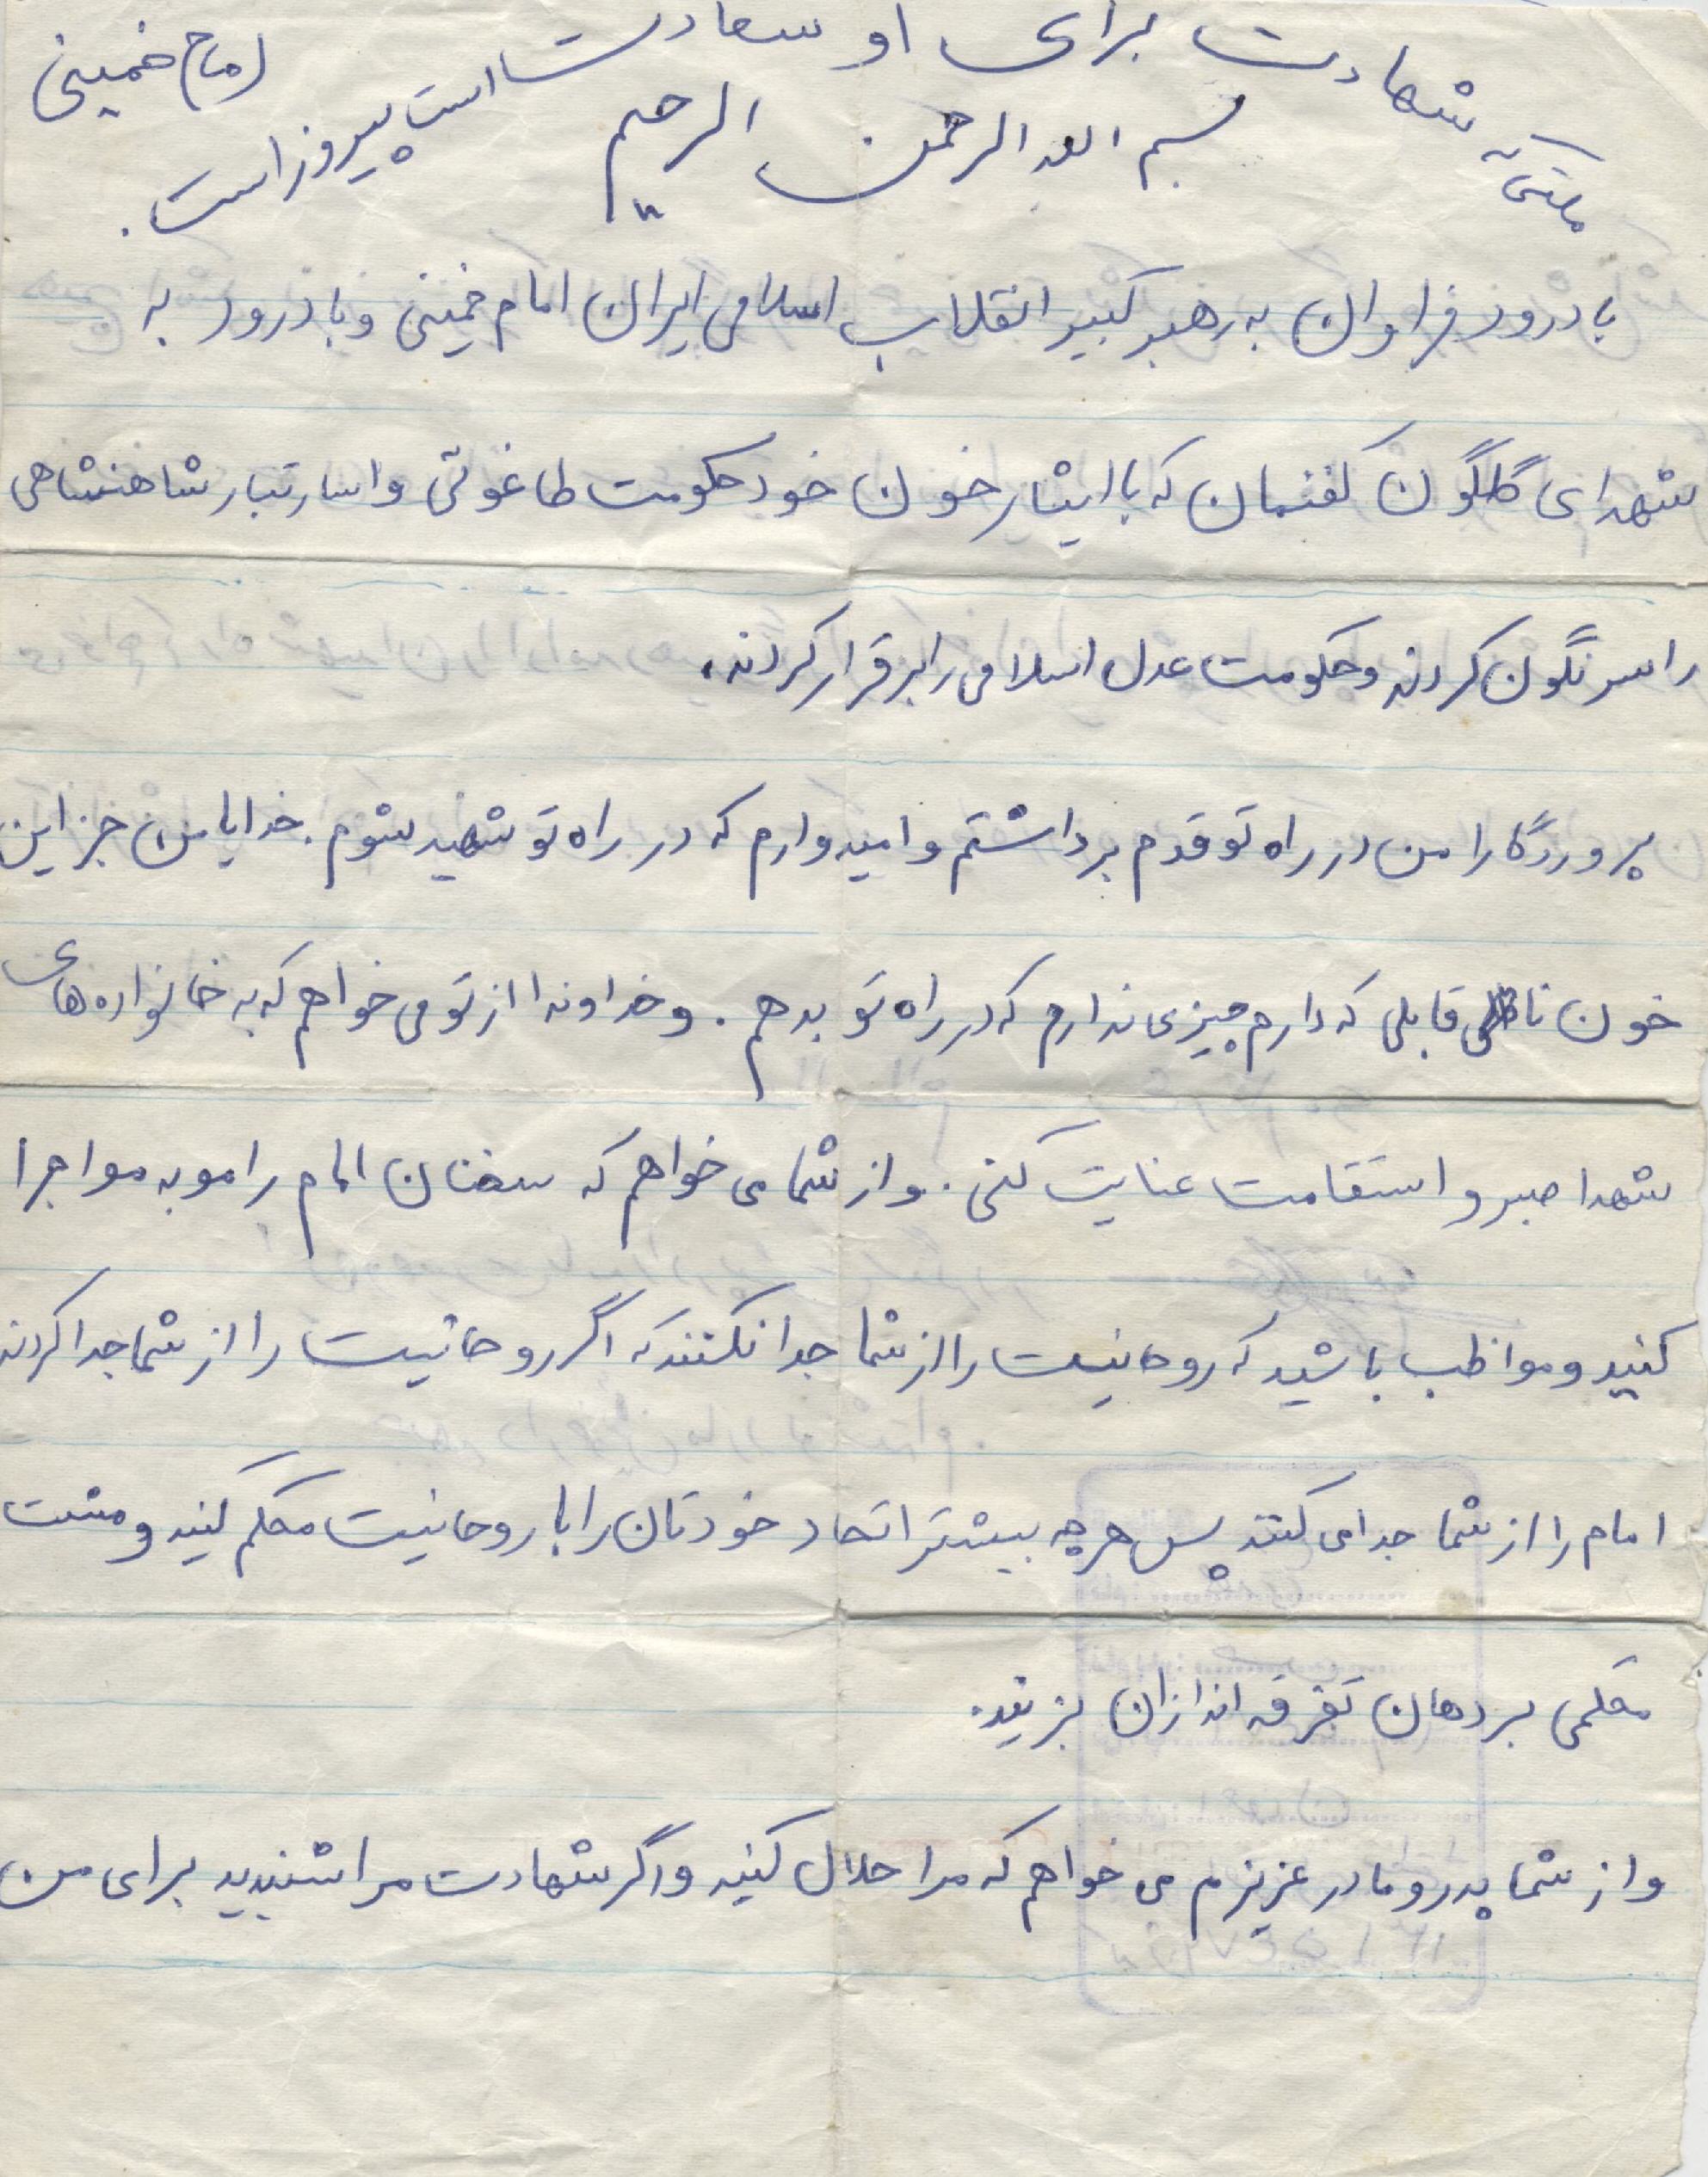 ملتی که شهادت برای او سعادت است پیروز است.
امام خمینی
بسم الله الرحمن الرحیم
با درود فراوان به رهبر کبیر انقلاب اسلامی ایران امام خمینی و با درود به
شهدای گلگون کفنمان که با ایثار خون خود حکومت طاغوتی و اسارتبار شاهنشاهی
را سرنگون کردند و حکومت عدل اسلامی را برقرار کردند.
پروردگارا من در راه تو قدم برداشتم و امیدوارم که در راه تو شهید شوم. خدایا من جز این
خون نا قابلی که دارم چیزی ندارم که در راه تو بدهم. و خداوندا از تو می خواهم که به خانواده های
شهدا صبر و استقامت عنایت کنی. و از شما می خواهم که سخنان امام را مو به مو اجرا
کنید و مواظب باشید که روحانیت را از شما جدا نکنند که اگر روحانیت را از شما جدا کردند
امام را از شما جدا می کنند پس هر چه بیشتر اتحاد خودتان را با روحانیت محکم کنید و مشت
محکمی بر دهان تفرقه اندازان بزنید.
و از شما پدر و مادر عزیزم می خواهم که مرا حلال کنید و اگر شهادت مرا شنیدید برای من